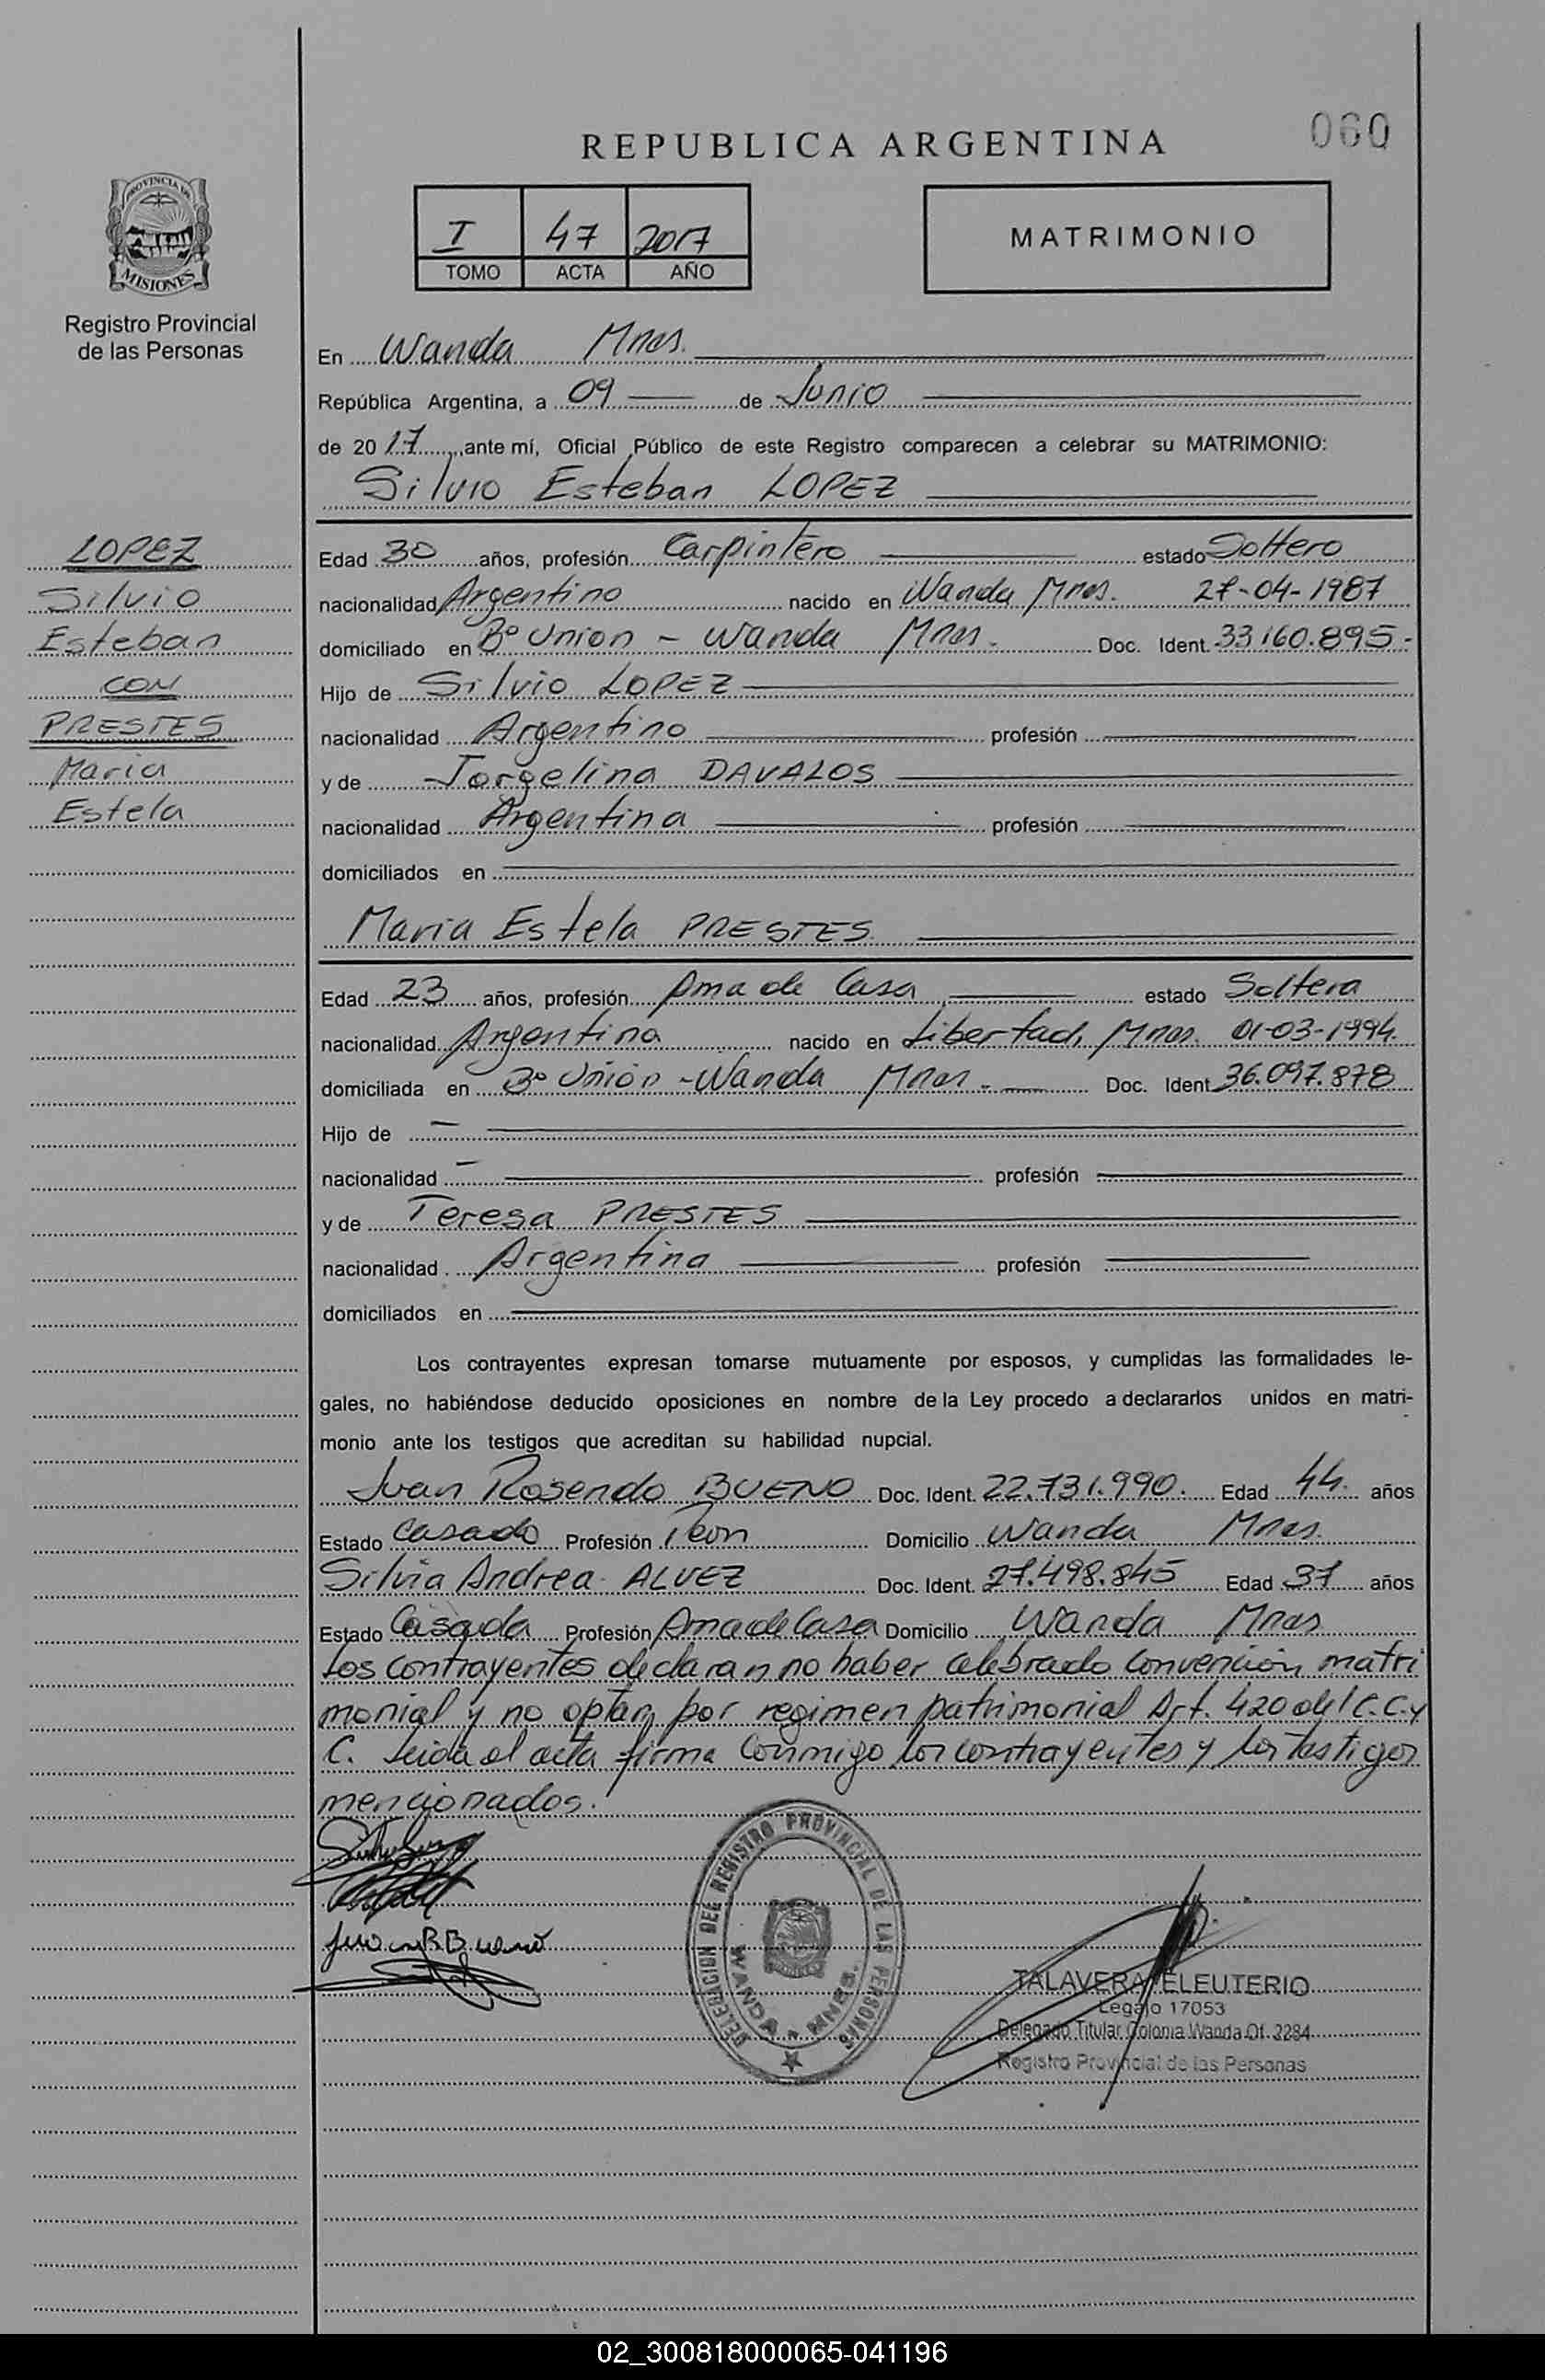 060
REPUBLICA ARGENTINA
PROVINCIA DE
MISIONES
Registro Provincial
de las Personas
I 47 2017
TOMO ACTA AÑO
MATRIMONIO
En Wanda Mnes.
República Argentina, a 09 de Junio
de 2017, ante mí, Oficial Público de este Registro comparecen a celebrar su MATRIMONIO:
Silvio Esteban LOPEZ
LOPEZ
Silvio
Esteban
CON
PRESTES
Maria
Estela
Edad 30 años, profesión Carpintero estado Soltero
nacionalidad Argentino nacido en Wanda Mnes. 27-04-1987
domiciliado en Bº Union - Wanda Mnes. Doc. Ident. 33.160.895.-
Hijo de Silvio LOPEZ
nacionalidad Argentino profesión
y de Jorgelina DAVALOS
nacionalidad Argentina profesión
domiciliados en
Maria Estela PRESTES
Edad 23 años, profesión Ama de Casa estado Soltera
nacionalidad Argentina nacido en Libertad, Mnes. 01-03-1994.
domiciliada en Bº Unión - Wanda Mnes.- Doc. Ident 36.097.878
Hijo de -
nacionalidad - profesión
y de Teresa PRESTES
nacionalidad Argentina profesión
domiciliados en
Los contrayentes expresan tomarse mutuamente por esposos, y cumplidas las formalidades le-
gales, no habiéndose deducido oposiciones en nombre de la Ley procedo a declararlos unidos en matri-
monio ante los testigos que acreditan su habilidad nupcial.
Juan Rosendo BUENO Doc. Ident. 22.731.990. Edad 44. años
Estado Casado Profesión Peon Domicilio Wanda Mnes.
Silvia Andrea ALVEZ Doc. Ident. 27.498.845 Edad 37 años
Estado Casada Profesión Ama de Casa Domicilio Wanda Mnes
Los contrayentes declaran no haber celebrado convención matri
monial y no optan por regimen patrimonial Art. 420 del C.C.y
C. Leida el acta firma conmigo los contrayentes y los testigos
mencionados.
DELEGACION DEL REGISTRO PROVINCIAL DE LAS PERSONAS
WANDA - MNES.
TALAVERA ELEUTERIO
Legajo 17053
Delegado Titular Colonia Wanda Of. 2284
Registro Provincial de las Personas
02_300818000065-041196